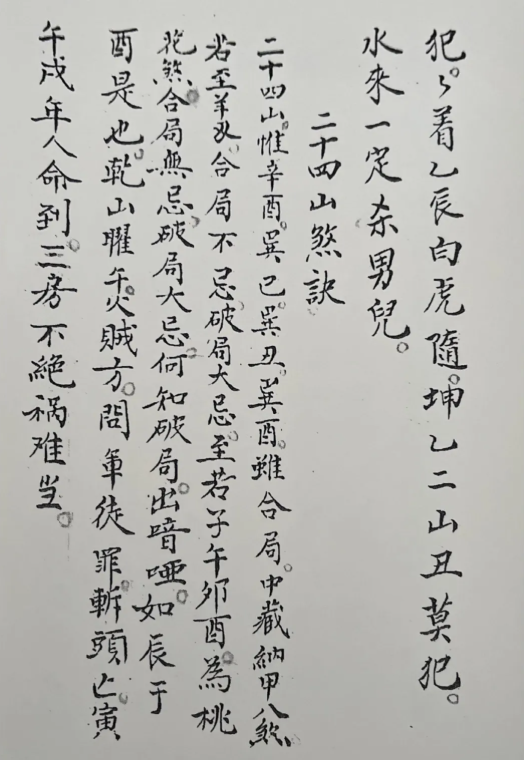 犯。犯着乙辰白虎隨。坤乙二山丑莫犯。
水來一定杀男兒。
二十四山煞訣
二十四山。惟辛酉。巽巳。巽丑。巽酉。雖合局。中藏納甲八煞。
若至羊刃。合局不忌。破局大忌。至若子午卯酉。為桃
花煞。合局無忌。破局大忌。何知破局。出喑啞。如辰于
酉是也。乾山曜午。火賊方。問軍徒罪。斬頭亡。寅
午戌年人命到。三房不絕祸难当。